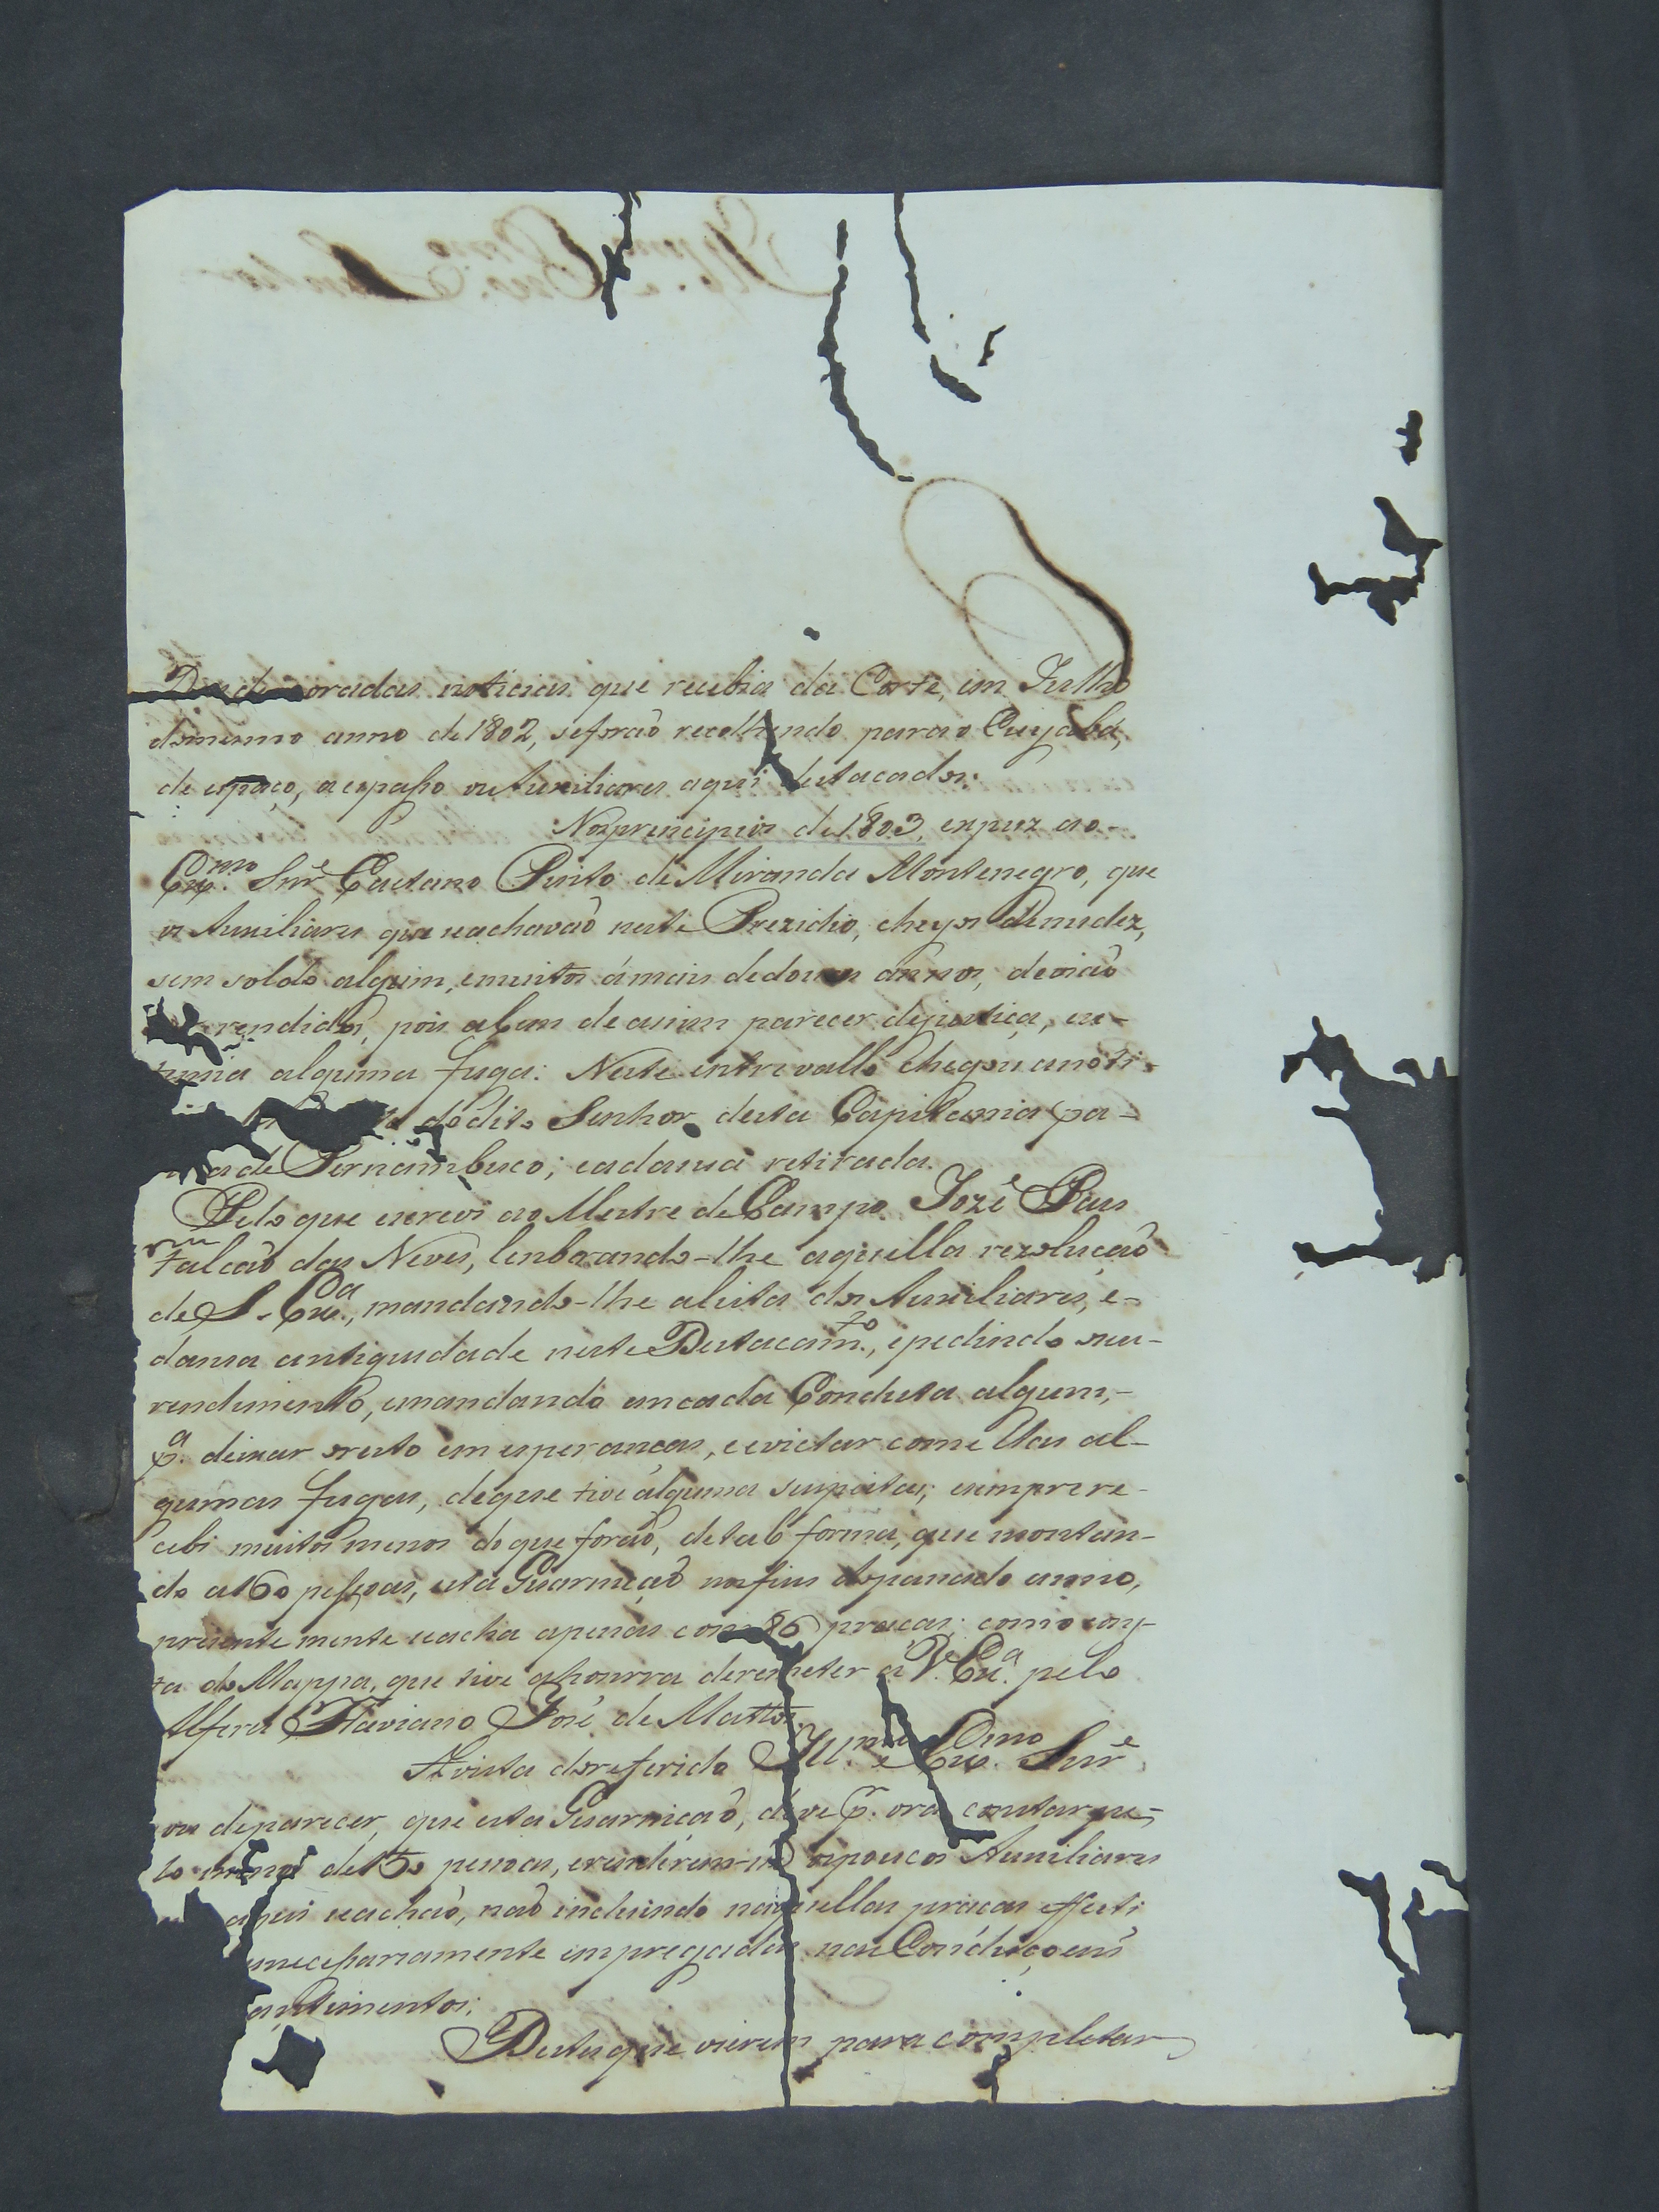 oradas noticias que recebia da Corte, em Julho
domesmo anno de 1802, seforaõ recolhendo para o Cuyabá,
de espaço, a espaßo os Auxiliares aqui destacados.
Nos principios de 1803, expuz ao
Exmo. Snr.e Caetano Pinto de Miranda Montenegro, que
os Auxiliares que se achavaõ neste Prezidio, cheyos de nudez,
sem soldo algum, e muitos á mais de dous annos, deviaõ
rendidos, pois alem de assim parecer de justiça, se-
temia alguma fuga: Neste intrevallo chegou a noti-
do dito Senhor desta Capitania pa-
ra a de Pernambuco; e a da sua retirada.
Pelo que escrevi ao Mestre de Campo Jozé Paes
Falcaõ das Neves, lenbrando-lhe aquella rezoluçaõ
de S. Exa., mandando-lhe a lista dos Auxiliares, e-
da sua antiguidade neste Destacamto., e pedindo seu-
rendimento, e mandando em cada Conduta alguns,-
pa. deixar o resto em esperanças, e evictar com ellas al-
gumas fugas, de que tive alguma suspeitas; e sempre re-
cebi muitos menos do que foraõ, de tal forma, que montan-
do a 160 peßoas, esta Guarniçaõ nos fins do passado anno,
prezentemente se acha apenas com 86 praças; como cons-
ta do Mappa, que tive a honrra de remeter á V. Exa. pelo
Alferes Flaviano José de Mattos.
A vista do referido Illmo. e Exmo. Snr.e
sou de parecer, que esta Guarniçaõ, deve pr. ora constar pe-
lo menos de 150 pessoas, e renderem-se os poucos Auxiliares
aqui se achaõ, naõ incluindo naquellas praças effeti
uneceßariamente empregadas nas Conduçoens
antimentos:
Destes que vierem para completar